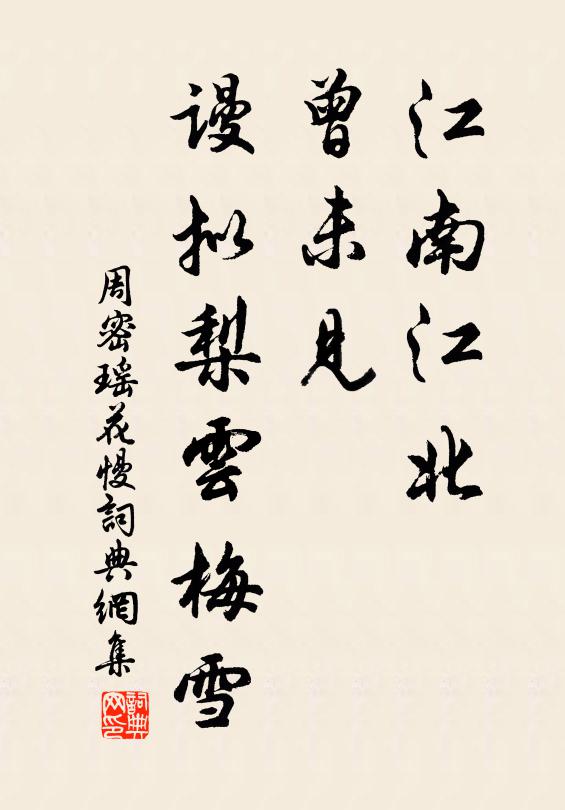 江南江北
曾未見
谩拟梨雲梅雪
周密瑶花慢詞典網集
詞典网印